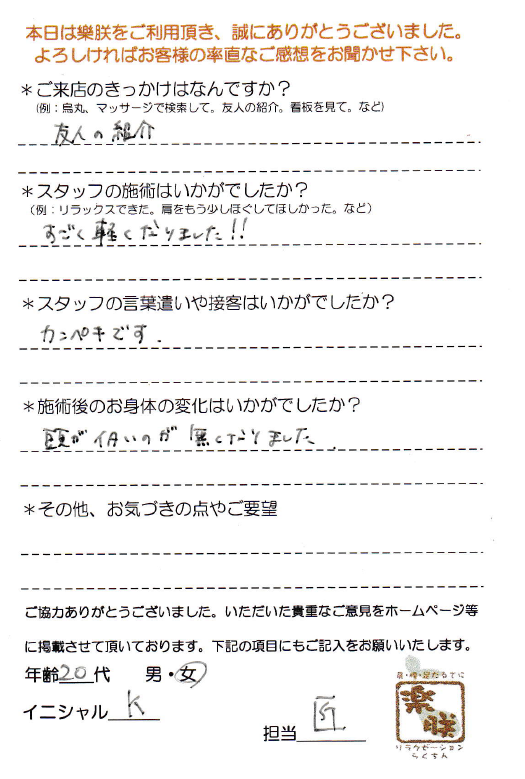 本日は樂朕をご利用頂き、誠にありがとうございました。
よろしければお客様の率直なご感想をお聞かせ下さい。
＊ご来店のきっかけはなんですか？
（例：烏丸、マッサージで検索して。友人の紹介。看板を見て。など）
友人の紹介
＊スタッフの施術はいかがでしたか？
（例：リラックスできた。肩をもう少しほぐしてほしかった。など）
すごく軽くなりました!!
＊スタッフの言葉遣いや接客はいかがでしたか？
カンペキです.
＊施術後のお身体の変化はいかがでしたか？
頭が
のが無くなりました.
＊その他、お気づきの点やご要望
ご協力ありがとうございました。いただいた貴重なご意見をホームページ等
に掲載させて頂いております。下記の項目にもご記入をお願いいたします。
年齢20代 男・女
イニシャル K
担当 匠
樂朕
リラクゼーション
らくちん